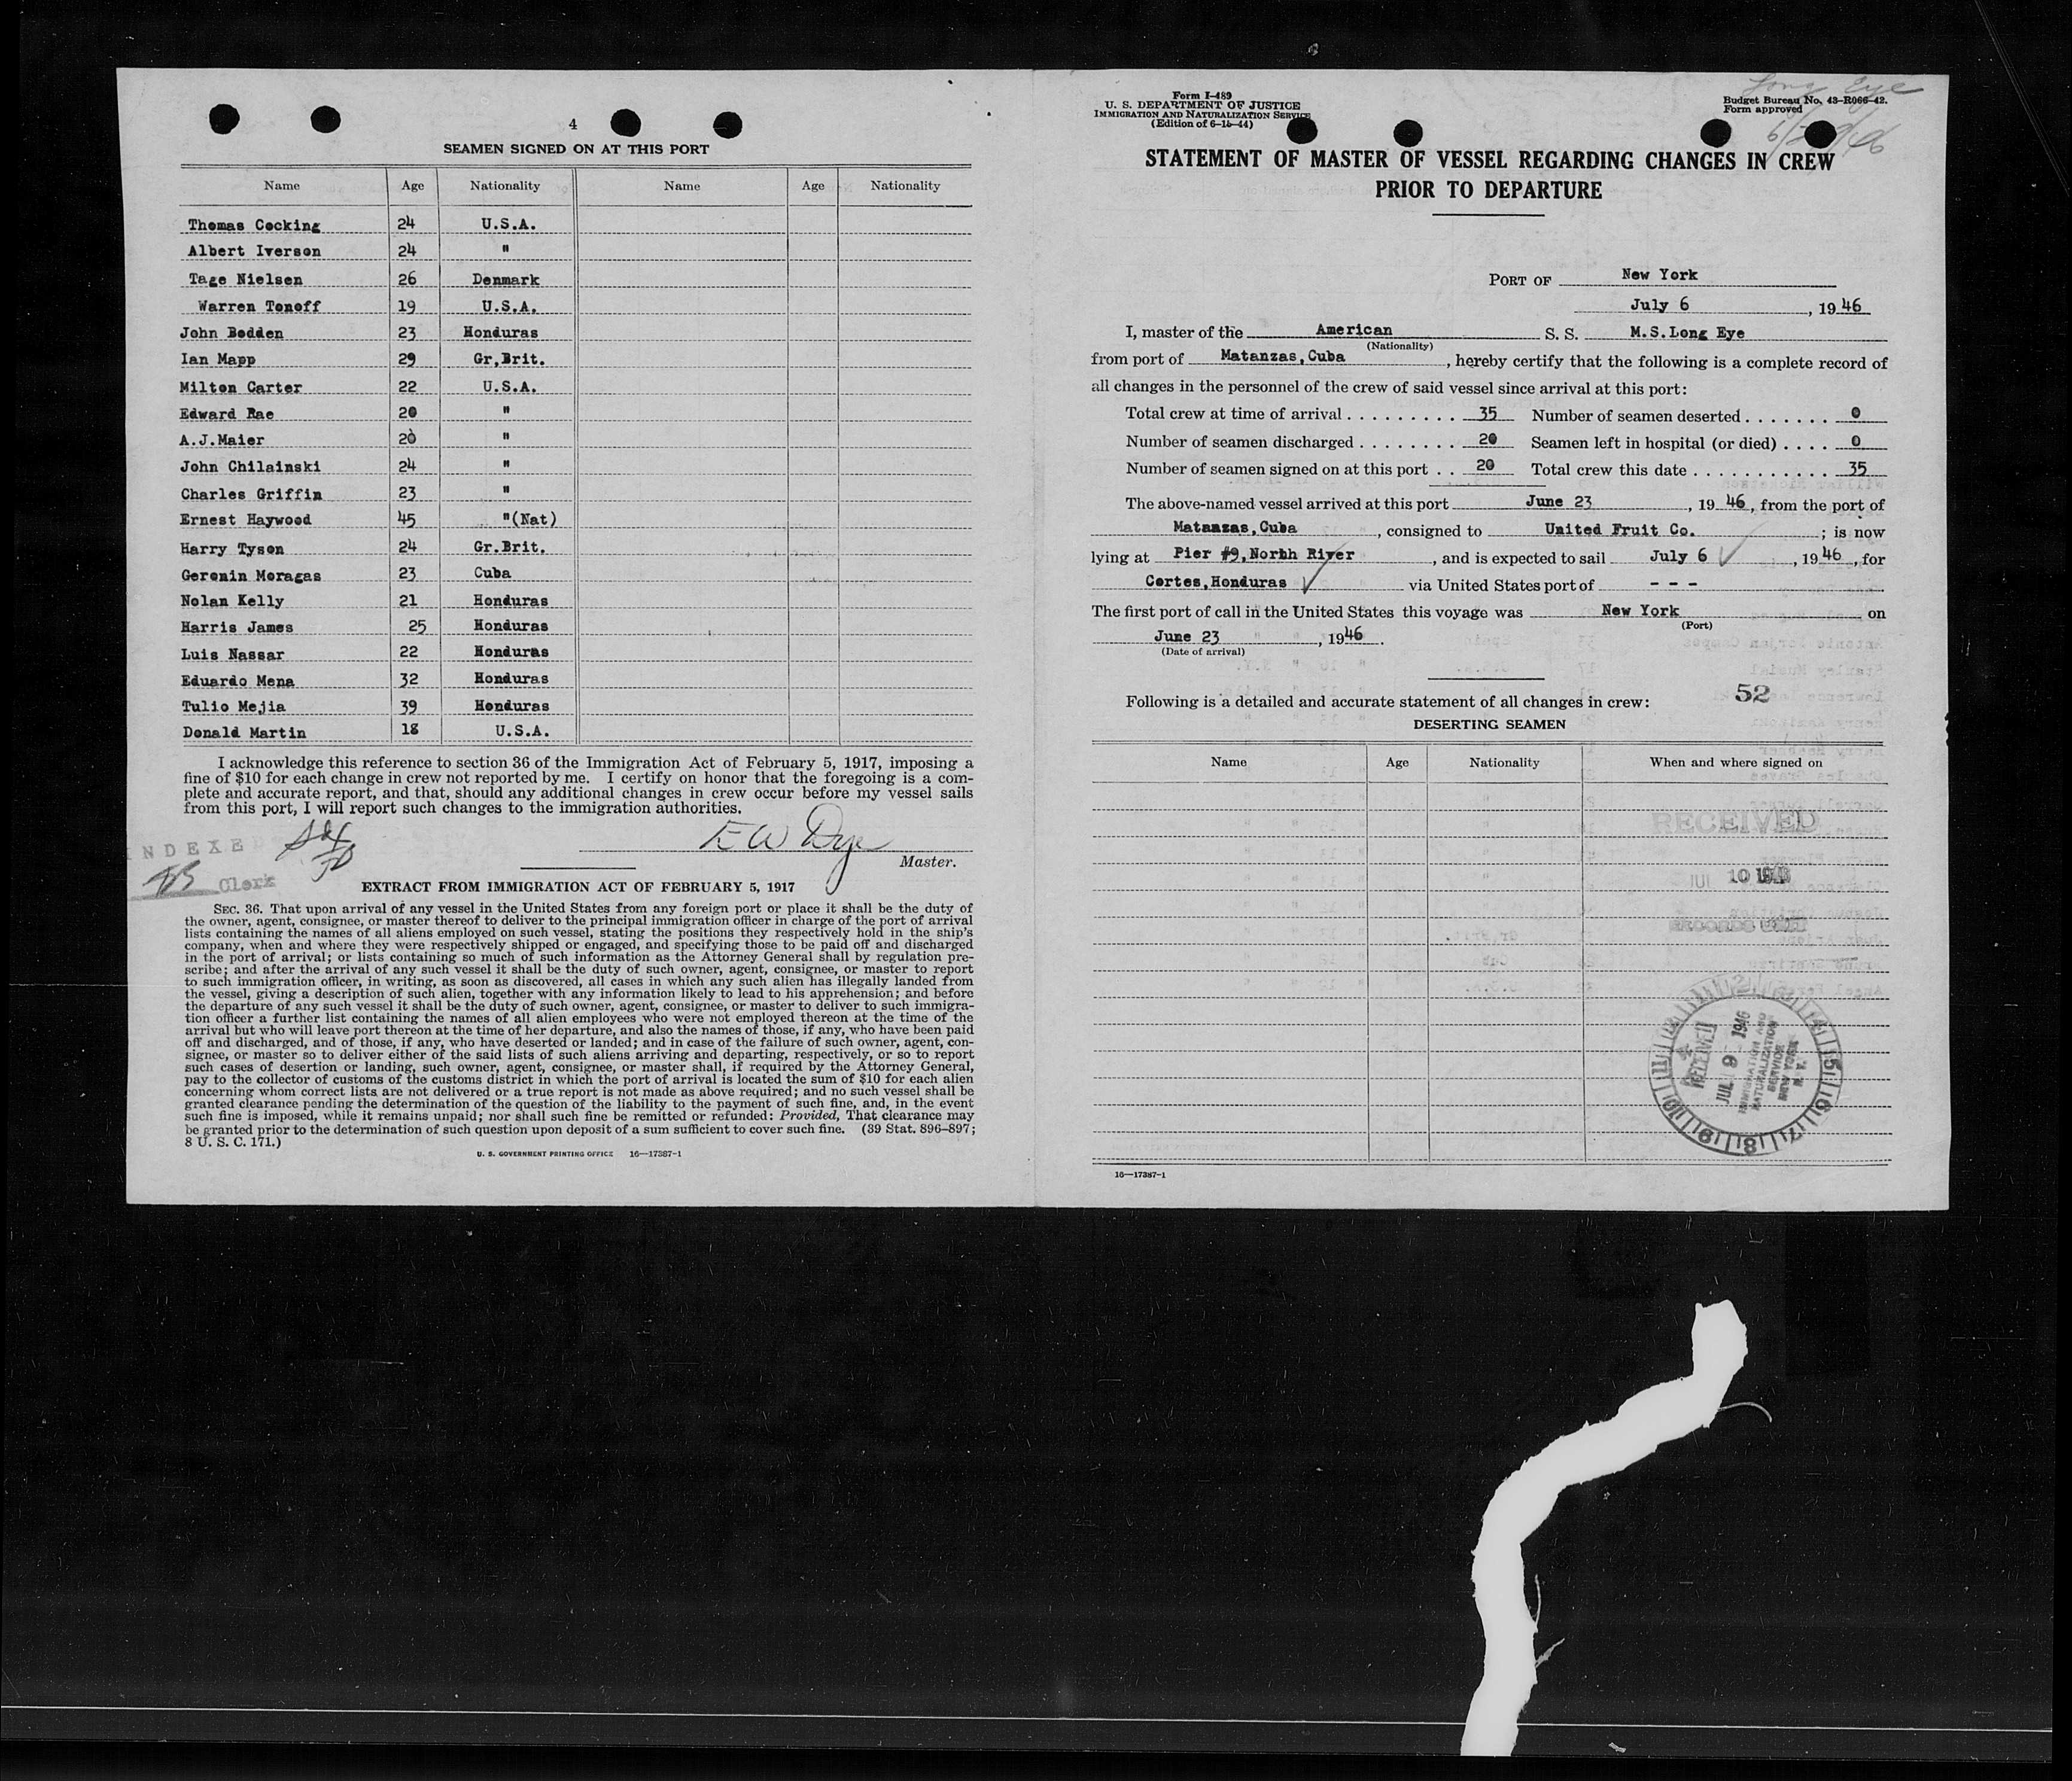 4
SEAMEN SIGNED ON AT THIS PORT
Name Age Nationality Name Age Nationality
Thomas Cocking 24 U.S.A.
Albert Iverson 24 "
Tage Nielsen 26 Denmark
Warren Tonoff 19 U.S.A.
John Bodden 23 Honduras
Ian Mapp 29 Gr,Brit.
Milton Carter 22 U.S.A.
Edward Rae 20 "
A.J.Maier 20 "
John Chilainski 24 "
Charles Griffin 23 "
Ernest Haywood 45 "(Nat)
Harry Tyson 24 Gr.Brit.
Geronin Moragas 23 Cuba
Nolan Kelly 21 Honduras
Harris James 25 Honduras
Luis Nassar 22 Honduras
Eduardo Mena 32 Honduras
Tulio Mejia 39 Honduras
Donald Martin 18 U.S.A.
I acknowledge this reference to section 36 of the Immigration Act of February 5, 1917, imposing a
fine of $10 for each change in crew not reported by me. I certify on honor that the foregoing is a com-
plete and accurate report, and that, should any additional changes in crew occur before my vessel sails
from this port, I will report such changes to the immigration authorities.
E W Dye
Master.
INDEXED
Clerk
EXTRACT FROM IMMIGRATION ACT OF FEBRUARY 5, 1917
SEC. 36. That upon arrival of any vessel in the United States from any foreign port or place it shall be the duty of
the owner, agent, consignee, or master thereof to deliver to the principal immigration officer in charge of the port of arrival
lists containing the names of all aliens employed on such vessel, stating the positions they respectively hold in the ship's
company, when and where they were respectively shipped or engaged, and specifying those to be paid off and discharged
in the port of arrival; or lists containing so much of such information as the Attorney General shall by regulation pre-
scribe; and after the arrival of any such vessel it shall be the duty of such owner, agent, consignee, or master to report
to such immigration officer, in writing, as soon as discovered, all cases in which any such alien has illegally landed from
the vessel, giving a description of such alien, together with any information likely to lead to his apprehension; and before
the departure of any such vessel it shall be the duty of such owner, agent, consignee, or master to deliver to such immigra-
tion officer a further list containing the names of all alien employees who were not employed thereon at the time of the
arrival but who will leave port thereon at the time of her departure, and also the names of those, if any, who have been paid
off and discharged, and of those, if any, who have deserted or landed; and in case of the failure of such owner, agent, con-
signee, or master so to deliver either of the said lists of such aliens arriving and departing, respectively, or so to report
such cases of desertion or landing, such owner, agent, consignee, or master shall, if required by the Attorney General,
pay to the collector of customs of the customs district in which the port of arrival is located the sum of $10 for each alien
concerning whom correct lists are not delivered or a true report is not made as above required; and no such vessel shall be
granted clearance pending the determination of the question of the liability to the payment of such fine, and, in the event
such fine is imposed, while it remains unpaid; nor shall such fine be remitted or refunded: Provided, That clearance may
be granted prior to the determination of such question upon deposit of a sum sufficient to cover such fine. (39 Stat. 896–897;
8 U. S. C. 171.)
U. S. GOVERNMENT PRINTING OFFICE 16—17387-1
Form I-489
U. S. DEPARTMENT OF JUSTICE
IMMIGRATION AND NATURALIZATION SERVICE
(Edition of 6-15-44)
Long Eye
Budget Bureau No. 43-R066-42.
Form approved
STATEMENT OF MASTER OF VESSEL REGARDING CHANGES IN CREW
PRIOR TO DEPARTURE
PORT OF New York
July 6, 1946
I, master of the American S. S. M.S.Long Eye
(Nationality)
from port of Matanzas,Cuba, hereby certify that the following is a complete record of
all changes in the personnel of the crew of said vessel since arrival at this port:
Total crew at time of arrival . . . . . . . . . . 35 Number of seamen deserted . . . . . . . 0
Number of seamen discharged . . . . . . . . 20 Seamen left in hospital (or died) . . . . 0
Number of seamen signed on at this port . . 20 Total crew this date . . . . . . . . . . . 35
The above-named vessel arrived at this port June 23, 1946, from the port of
Matanzas,Cuba, consigned to United Fruit Co.; is now
lying at Pier #9,North River, and is expected to sail July 6, 1946, for
Cortes,Honduras via United States port of - - -
The first port of call in the United States this voyage was New York on
(Port)
June 23, 1946.
(Date of arrival)
52
Following is a detailed and accurate statement of all changes in crew:
DESERTING SEAMEN
Name Age Nationality When and where signed on
RECEIVED
JUL 10 1946
RECORDS UNIT
RECEIVED
JUL 9 1946
IMMIGRATION AND
NATURALIZATION
SERVICE
NEW YORK
N. Y.
16—17387-1